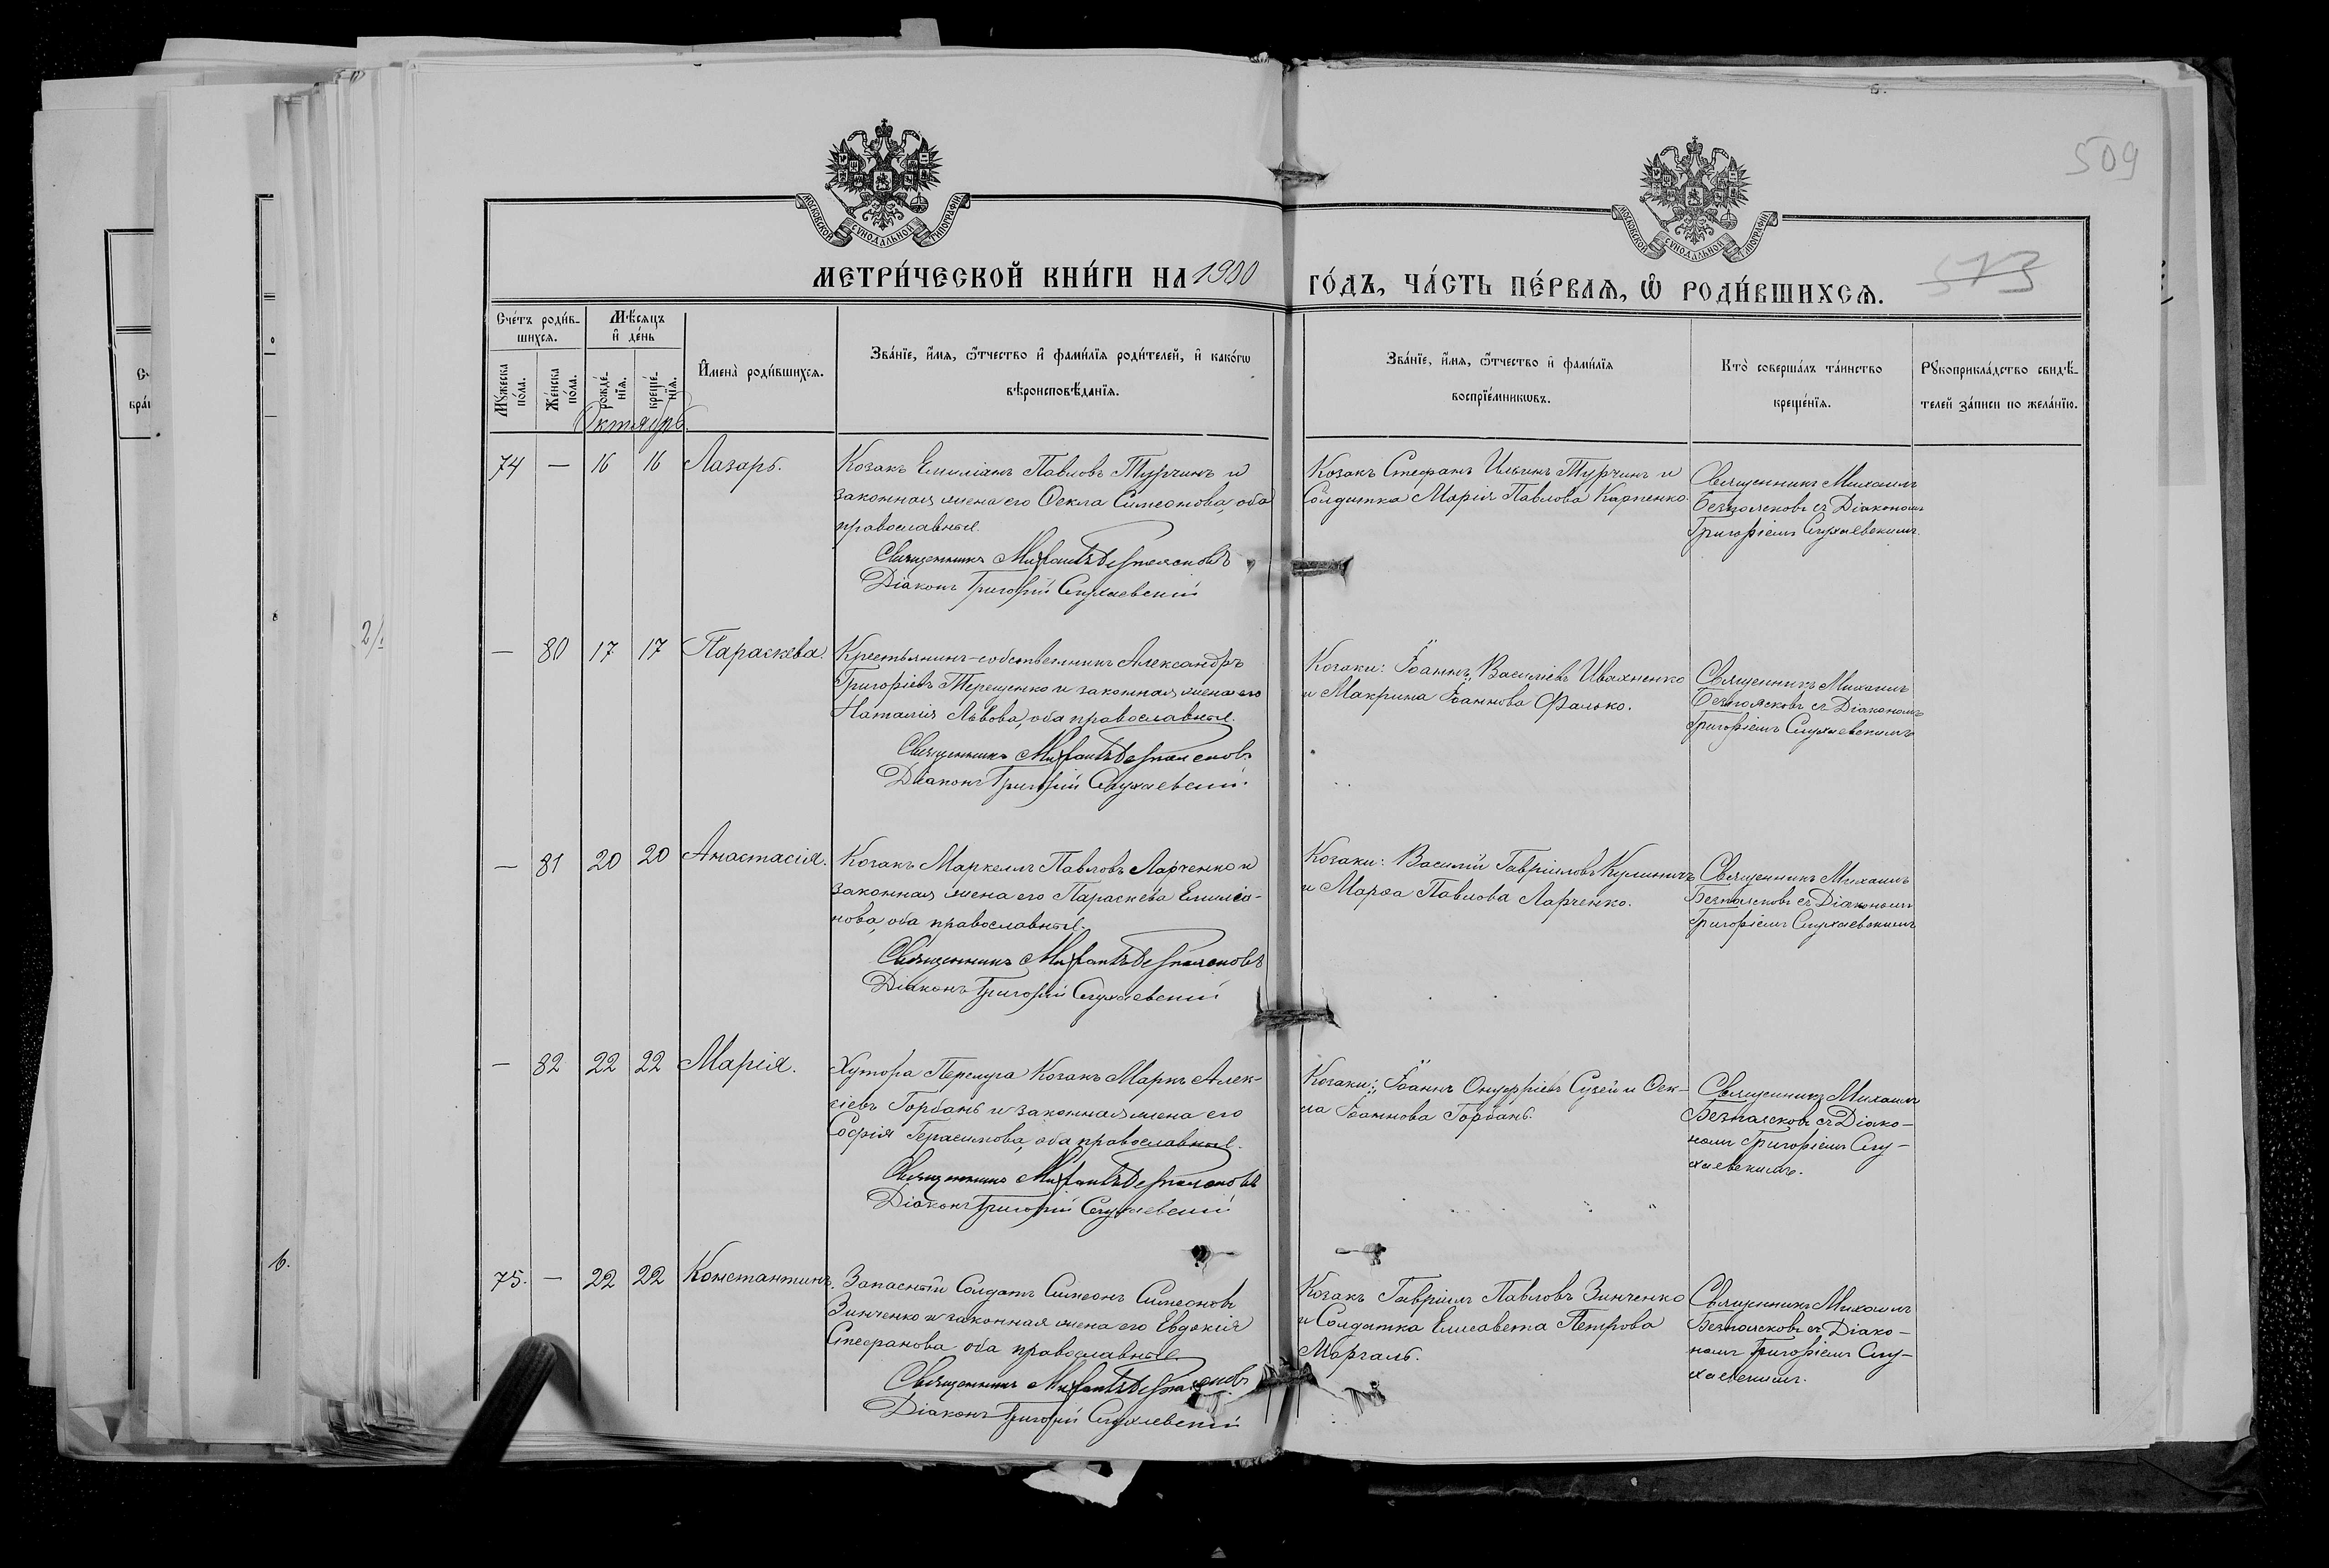 509
МОСКОВСКОЙ СУНОДАЛЬНОЙ ТИПОГРАФІИ
МОСКОВСКОЙ СУНОДАЛЬНОЙ ТИПОГРАФІИ
МЕТРИ́ЧЕСКОЙ КНИ́ГИ НА 1900 ГО́ДЪ, ЧА́СТЬ ПЕ́РВАѦ, Ѽ РОДИ́ВШИХСѦ.
573
Сче́тъ роди́в-
шихсѧ.
Мꙋ́жеска по́ла.
Же́нска по́ла.
Мѣ́сѧцъ
и҆ де́нь
рожде́-нїѧ.
креще́-нїѧ.
И҆мена̀ роди́вшихсѧ.
Зва́нїе, и҆́мѧ, ѻ҆́тчество и҆ фами́лїѧ роди́телей, и҆ како́гѡ
вѣроисповѣ́данїѧ.
Зва́нїе, и҆́мѧ, ѻ҆́тчество и҆ фами́лїѧ
воспрїе́мникѡвъ.
Кто̀ соверша́лъ та́инство
креще́нїѧ.
Рꙋкоприкла́дство свидѣ́-
телей за́писи по жела́нїю.
Октябрь.
74 — 16 16 Лазарь.
Козакъ Емиліанъ Павловъ Турчинъ и
законная жена его Ѳекла Симеонова, оба
православные.
Священникъ Михаилъ Безпаясковъ
Діаконъ Григорій Слухаевскій
Козакъ Стефанъ Ильинъ Турчинъ и
Солдатка Марія Павлова Карпенко.
Священникъ Михаилъ
Безпаясковъ съ Діакономъ
Григоріемъ Слухаевскимъ.
— 80 17 17 Параскева.
Крестьянинъ-собственникъ Александръ
Григоріевъ Терещенко и законная жена его
Наталія Львова, оба православные.
Священникъ Михаилъ Безпаясковъ
Діаконъ Григорій Слухаевскій
Козаки: Іоаннъ Василіевъ Ивахненко
и Макрина Іоаннова Фалько.
Священникъ Михаилъ
Безпаясковъ съ Діакономъ
Григоріемъ Слухаевскимъ
— 81 20 20 Анастасія.
Козакъ Маркеллъ Павловъ Ларченко и
законная жена его Параскева Емиліа-
нова, оба православные.
Священникъ Михаилъ Безпаясковъ
Діаконъ Григорій Слухаевскій
Козаки: Василій Гавріиловъ Кулиничъ
и Марѳа Павлова Ларченко.
Священникъ Михаилъ
Безпаясковъ съ Діакономъ
Григоріемъ Слухаевскимъ
— 82 22 22 Марія.
Хутора Перелуга Козакъ Маркъ Алек-
сіевъ Горбань и законная жена его
Софія Герасимова, оба православные.
Священникъ Михаилъ Безпаясковъ
Діаконъ Григорій Слухаевскій
Козаки: Іоаннъ Онуфріевъ Сузей и Ѳек-
ла Іоаннова Горбань.
Священникъ Михаилъ
Безпаясковъ съ Діако-
номъ Григоріемъ Слу-
хаевскимъ.
75. — 22 22 Константинъ.
Запасный Солдатъ Симеонъ Симеоновъ
Зинченко и законная жена его Евдокія
Стефанова оба православные.
Священникъ Михаилъ Безпаясковъ
Діаконъ Григорій Слухаевскій
Козакъ Гавріилъ Павловъ Зинченко
и Солдатка Елисавета Петрова
Моргаль.
Священникъ Михаилъ
Безпаясковъ съ Діако-
номъ Григоріемъ Слу-
хаевскимъ.